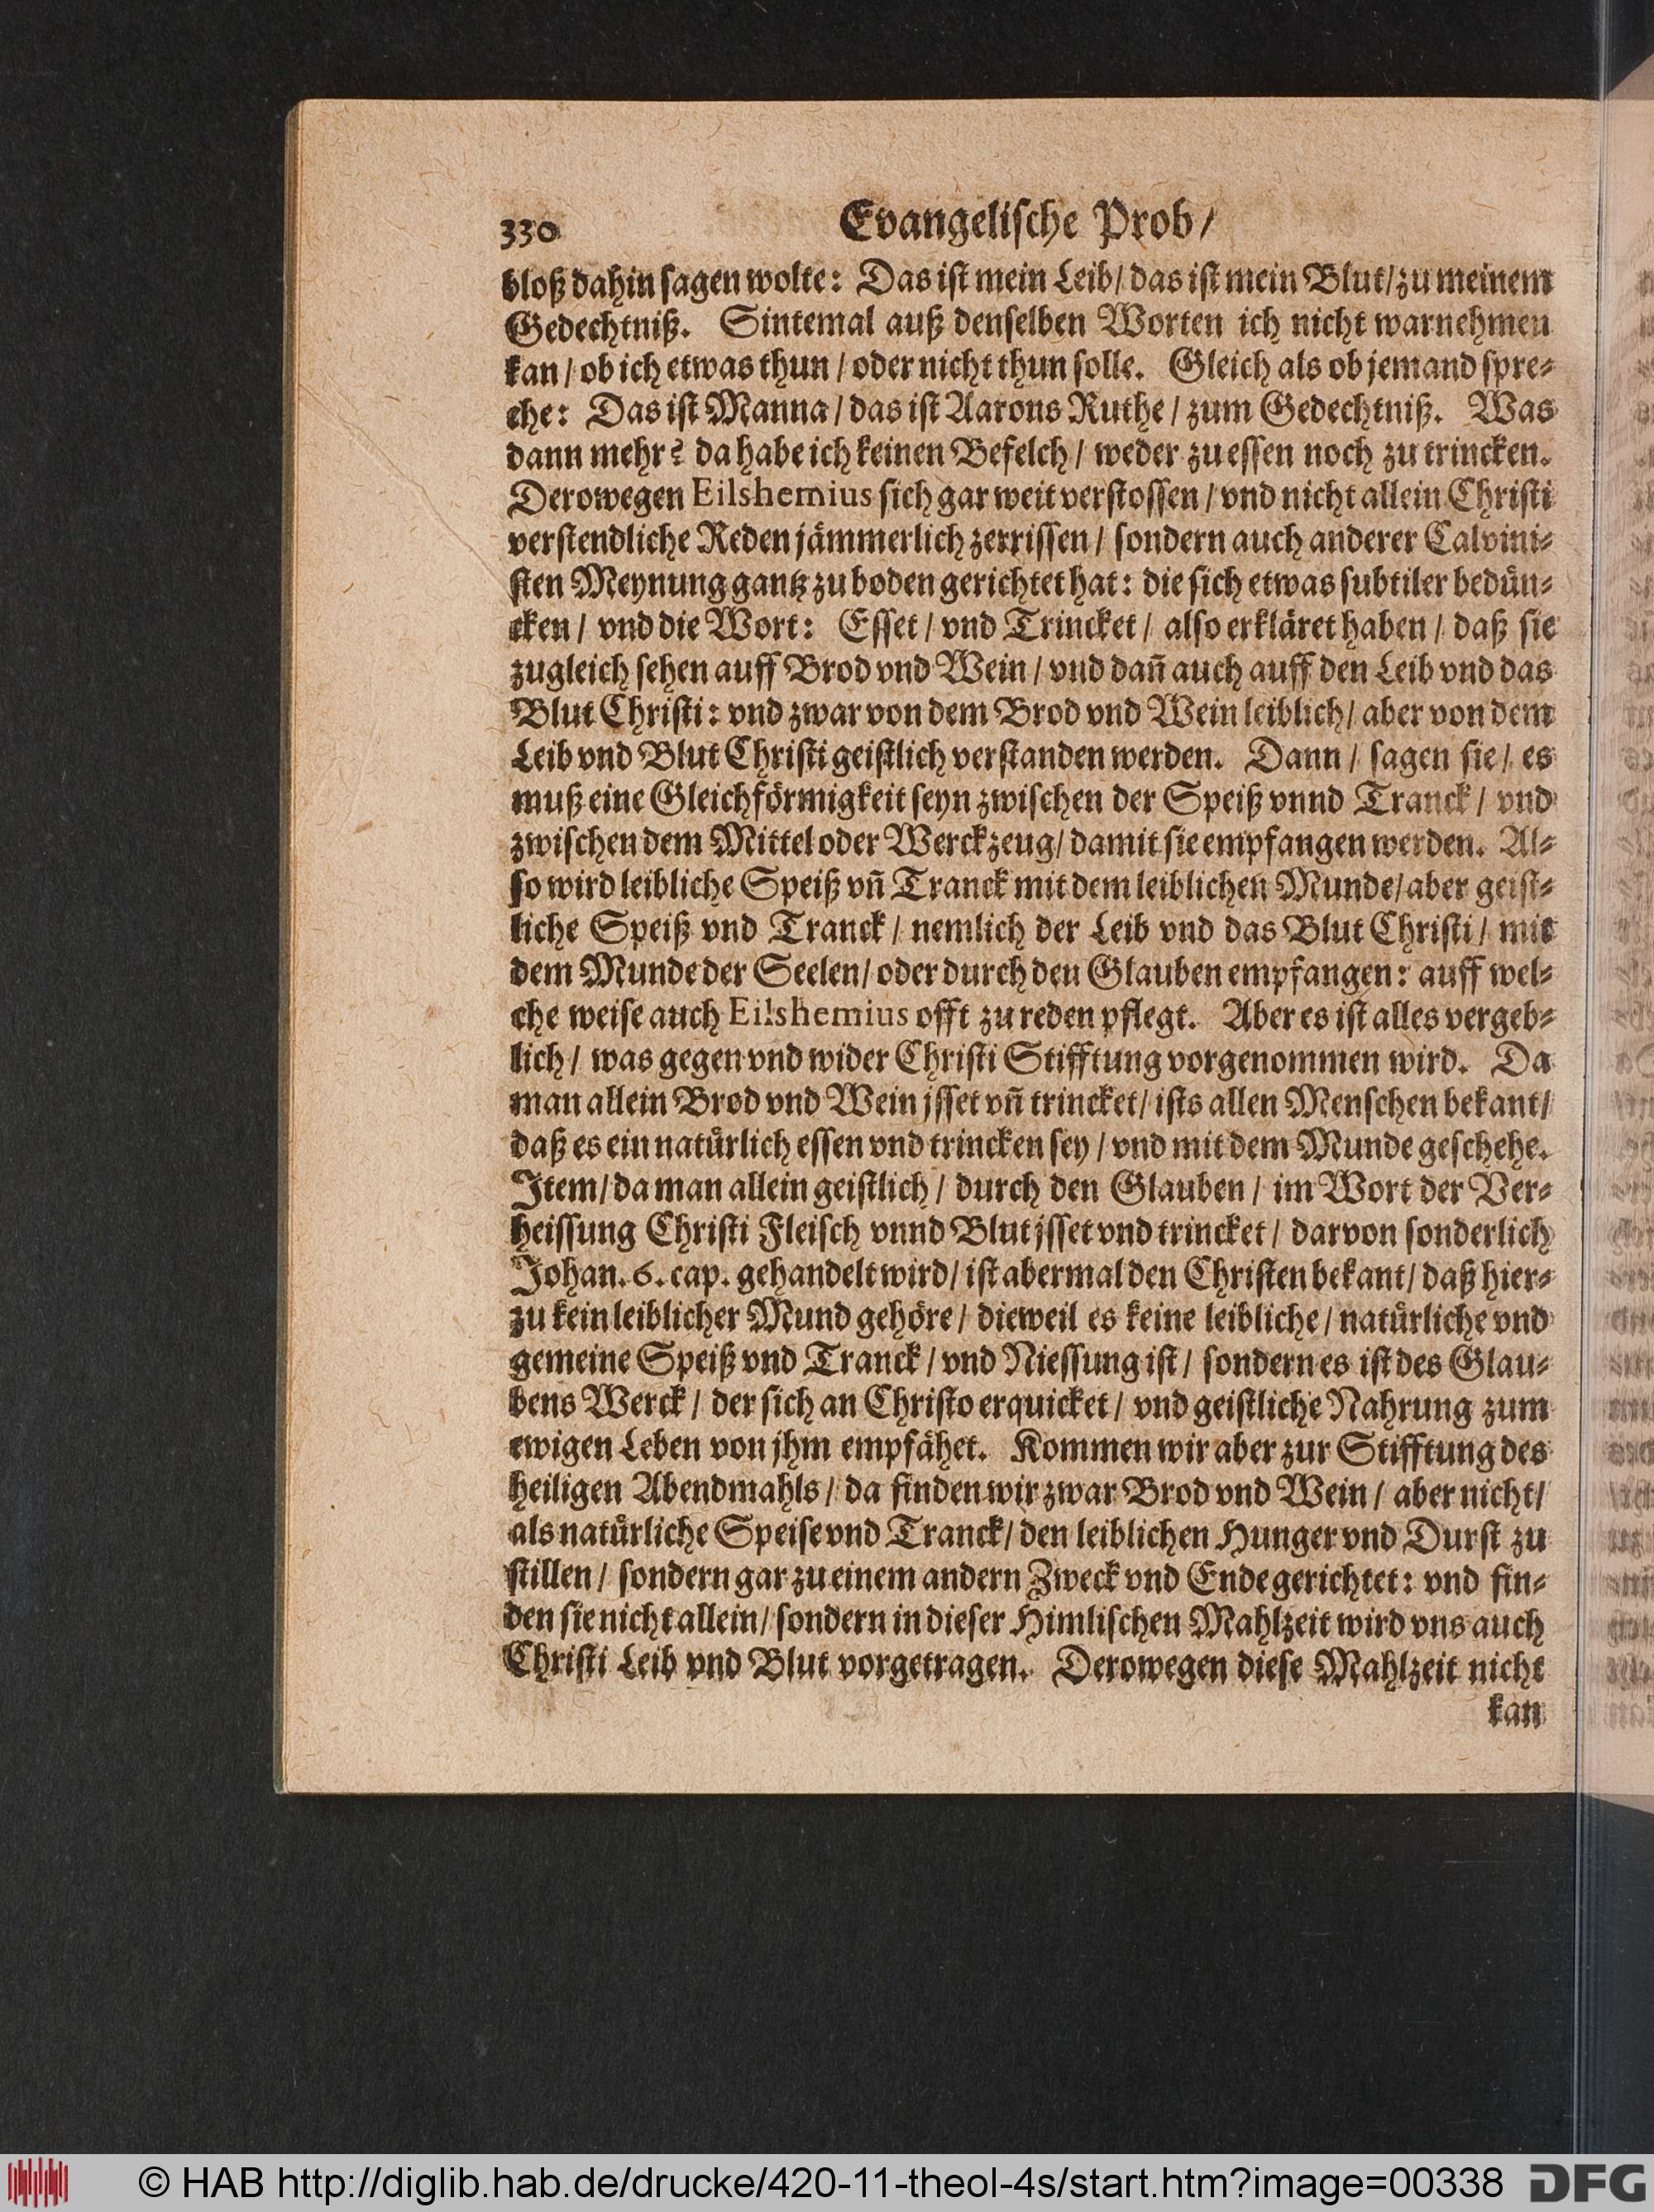 330 Evangelische Prob/
bloß dahin sagen wolte: Das ist mein Leib/ das ist mein Blut/ zu meinem
Gedechtniß. Sintemal auß denselben Worten ich nicht warnehmen
kan/ ob ich etwas thun/ oder nicht thun solle. Gleich als ob jemand spre-
che: Das ist Manna/ das ist Aarons Ruthe/ zum Gedechtniß. Was
dann mehr? da habe ich keinen Befelch/ weder zu essen noch zu trincken.
Derowegen Eilshemius sich gar weit verstossen/ vnd nicht allein Christi
verstendliche Reden jämmerlich zerrissen/ sondern auch anderer Calvini-
sten Meynung gantz zu boden gerichtet hat: die sich etwas subtiler bedün-
cken/ vnd die Wort: Esset/ vnd Trincket/ also erkläret haben/ daß sie
zugleich sehen auff Brod vnd Wein/ vnd dañ auch auff den Leib vnd das
Blut Christi: vnd zwar von dem Brod vnd Wein leiblich/ aber von dem
Leib vnd Blut Christi geistlich verstanden werden. Dann/ sagen sie/ es
muß eine Gleichförmigkeit seyn zwischen der Speiß vnnd Tranck/ vnd
zwischen dem Mittel oder Werckzeug/ damit sie empfangen werden. Al-
so wird leibliche Speiß vñ Tranck mit dem leiblichen Munde/ aber geist-
liche Speiß vnd Tranck/ nemlich der Leib vnd das Blut Christi/ mit
dem Munde der Seelen/ oder durch den Glauben empfangen: auff wel-
che weise auch Eilshemius offt zu reden pflegt. Aber es ist alles vergeb-
lich/ was gegen vnd wider Christi Stifftung vorgenommen wird. Da
man allein Brod vnd Wein jsset vñ trincket/ ists allen Menschen bekant/
daß es ein natürlich essen vnd trincken sey/ vnd mit dem Munde geschehe.
Item/ da man allein geistlich/ durch den Glauben/ im Wort der Ver-
heissung Christi Fleisch vnnd Blut jsset vnd trincket/ darvon sonderlich
Johan. 6. cap. gehandelt wird/ ist abermal den Christen bekant/ daß hier-
zu kein leiblicher Mund gehöre/ dieweil es keine leibliche/ natürliche vnd
gemeine Speiß vnd Tranck/ vnd Niessung ist/ sondern es ist des Glau-
bens Werck/ der sich an Christo erquicket/ vnd geistliche Nahrung zum
ewigen Leben von jhm empfähet. Kommen wir aber zur Stifftung des
heiligen Abendmahls/ da finden wir zwar Brod vnd Wein/ aber nicht/
als natürliche Speise vnd Tranck/ den leiblichen Hunger vnd Durst zu
stillen/ sondern gar zu einem andern Zweck vnd Ende gerichtet: vnd fin-
den sie nicht allein/ sondern in dieser Himlischen Mahlzeit wird vns auch
Christi Leib vnd Blut vorgetragen. Derowegen diese Mahlzeit nicht
kan
© HAB http://diglib.hab.de/drucke/420-11-theol-4s/start.htm?image=00338 DFG